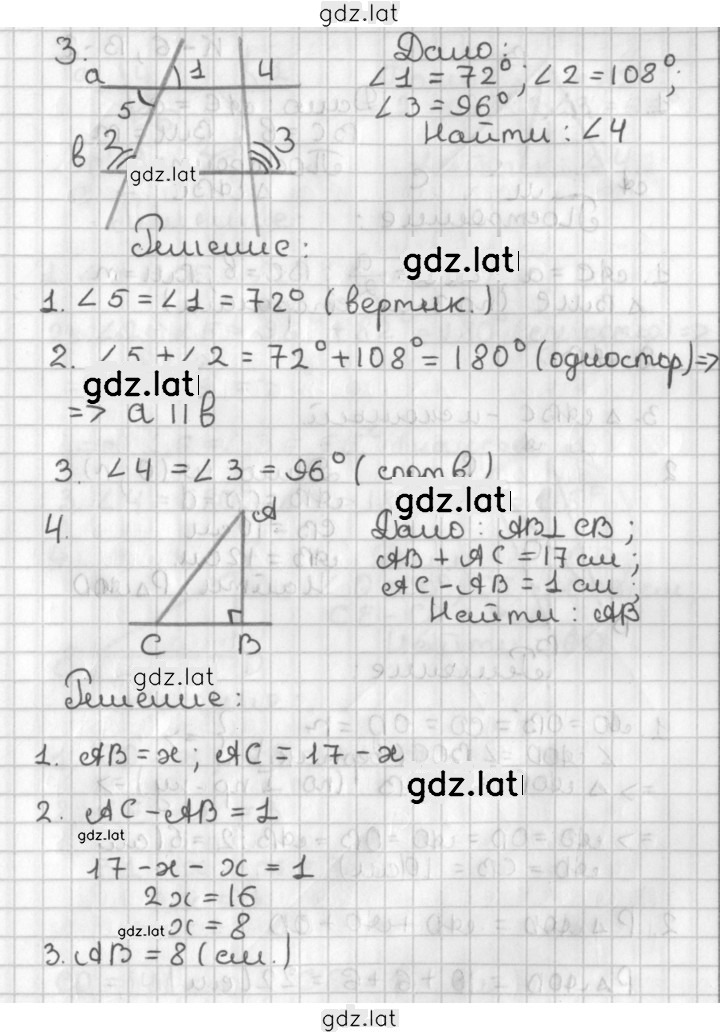 gdz.lat
3. a 1 4
5
в 2 3
gdz.lat
Дано:
∠1 = 72°; ∠2 = 108°;
∠3 = 96°
Найти: ∠4
Решение:
gdz.lat
1. ∠5 = ∠1 = 72° (вертик.)
2. ∠5 + ∠2 = 72° + 108° = 180° (одностор) =>
gdz.lat
=> a || в
3. ∠4 = ∠3 = 96° (соотв)
gdz.lat
4.
A
C B
gdz.lat
Дано: AB⊥CB;
AB + AC = 17 см;
AC - AB = 1 см;
Найти: AB
Решение:
1. AB = x; AC = 17 - x
gdz.lat
2. AC - AB = 1
gdz.lat
17 - x - x = 1
2x = 16
gdz.lat
x = 8
3. AB = 8 (см.)
gdz.lat